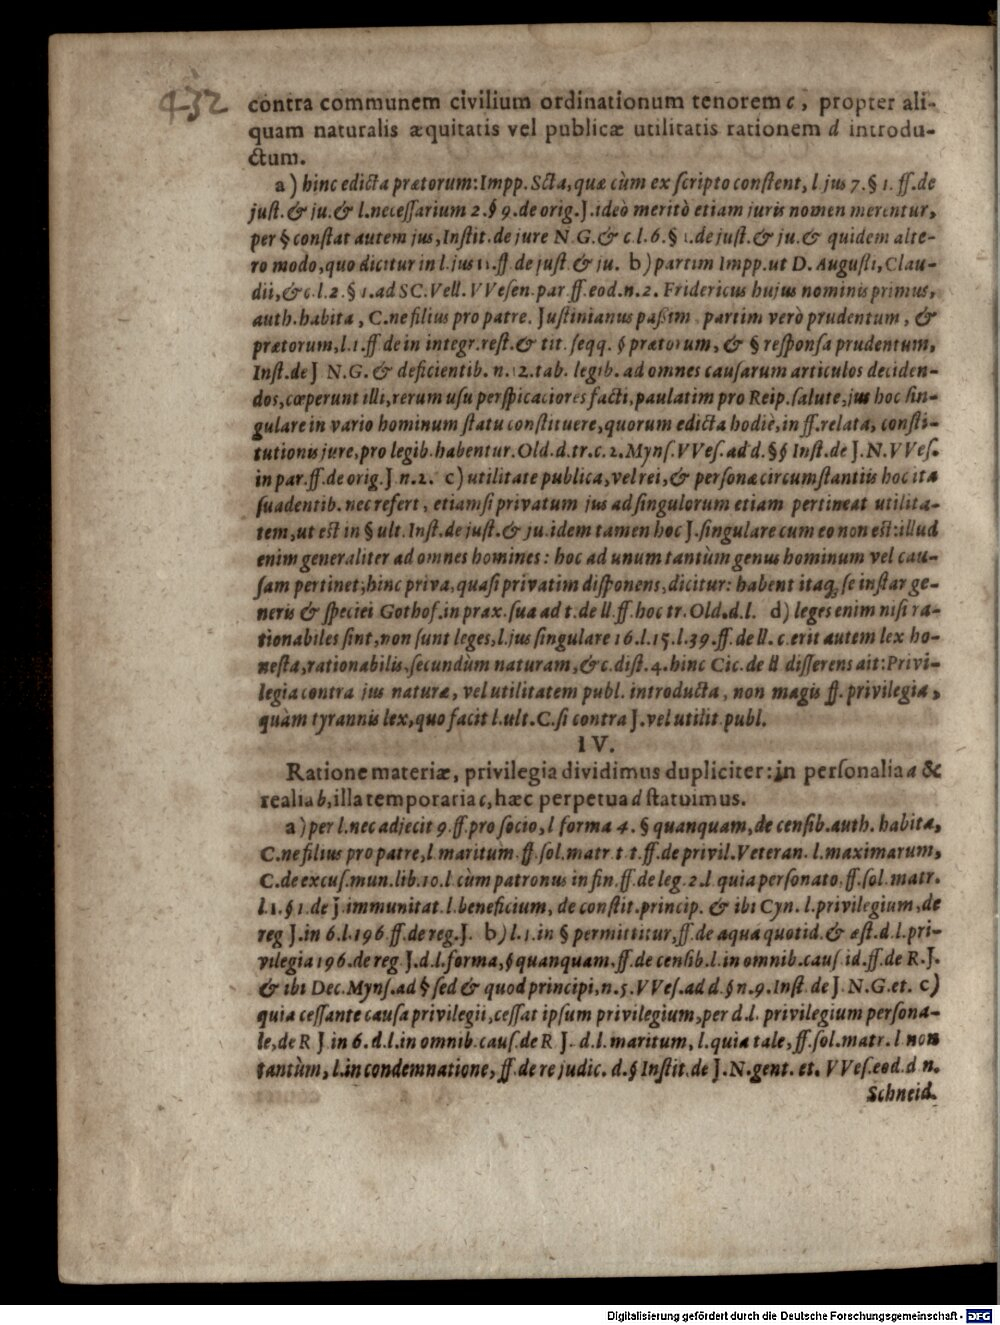 432
contra communem civilium ordinationum tenorem c, propter ali-
quam naturalis æquitatis vel publicæ utilitatis rationem d introdu-
ctum.
a) hinc edicta prætorum: Impp. Scta, quæ cùm ex scripto constent, l. jus 7. § 1. ff. de
just. & ju. & l. necessarium 2. § 9. de orig. J. ideò meritò etiam juris nomen merentur,
per § constat autem jus, Instit. de jure N. G. & c. l. 6. § 1. de just. & ju. & quidem alte-
ro modo, quo dicitur in l. jus 11. ff. de just. & ju. b) partim Impp. ut D. Augusti, Clau-
dii, &c. l. 2. § 1. ad SC. Vell. VVesen. par. ff. eod. n. 2. Fridericus hujus nominis primus,
auth. habita, C. ne filius pro patre. Justinianus paßim partim verò prudentum, &
prætorum, l. 1. ff de in integr. rest. & tit. seqq. § prætorum, & § responsa prudentum,
Inst. de J N. G. & deficientib. n. 12. tab. legib. ad omnes causarum articulos deciden-
dos, cœperunt illi, rerum usu perspicaciores facti, paulatim pro Reip. salute, jus hoc sin-
gulare in vario hominum statu constituere, quorum edicta hodiè, in ff. relata, consti-
tutionis jure, pro legib. habentur. Old. d. tr. c. 2. Myns. VVes. ad d. § § Inst. de J. N. VVes.
in par. ff. de orig. J. n. 2. c) utilitate publica, vel rei, & personæ circumstantiis hoc ita
suadentib. nec refert, etiamsi privatum jus ad singulorum etiam pertineat utilita-
tem, ut est in § ult. Inst. de just. & ju. idem tamen hoc J. singulare cum eo non est: illud
enim generaliter ad omnes homines: hoc ad unum tantùm genus hominum vel cau-
sam pertinet; hinc priva, quasi privatim disponens, dicitur: habent itaq; se instar ge-
neris & speciei Gothof. in prax. sua ad t. de ll. ff. hoc tr. Old. d. l. d) leges enim nisi ra-
tionabiles sint, non sunt leges, l. jus singulare 16. l. 15. l. 39. ff. de ll. c. erit autem lex ho-
nesta, rationabilis, secundùm naturam, &c. dist. 4. hinc Cic. de ll disserens ait: Privi-
legia contra jus naturæ, vel utilitatem publ. introducta, non magis ss. privilegia,
quàm tyrannis lex, quo facit l. ult. C. si contra J. vel utilit. publ.
IV.
Ratione materiæ, privilegia dividimus dupliciter: in personalia a &
realia b, illa temporaria c, hæc perpetua d statuimus.
a) per l. nec adjecit 9. ff. pro socio, l forma 4. § quanquam, de censib. auth. habita,
C. ne filius pro patre, l. maritum ff. sol. matr. t. t. ff. de privil. Veteran. l. maximarum,
C. de excus. mun. lib. 10. l cùm patronus in fin. ff. de leg. 2. l quia personato, ff. sol. matr.
l. 1. § 1. de J. immunitat. l. beneficium, de constit. princip. & ibi Cyn. l. privilegium, de
reg J. in 6. l. 196. ff. de reg. J. b) l. 1. in § permittitur, ff. de aqua quotid. & æst. d. l. pri-
vilegia 196. de reg J. d. l. forma, § quanquam. ff. de censib. l. in omnib. caus. id. ff. de R. J.
& ibi Dec. Myns. ad § sed & quod principi, n. 5. VVes. ad d. § n. 9. Inst. de J. N. G. et. c)
quia cessante causa privilegii, cessat ipsum privilegium, per d. l. privilegium persona-
le, de R J. in 6. d. l. in omnib. caus. de R J. d. l. maritum, l. quia tale, ff. sol. matr. l non
tantùm, l. in condemnatione, ff. de re judic. d. § Instit. de J. N. gent. et. VVes. eod. d n.
Schneid.
Digitalisierung gefördert durch die Deutsche Forschungsgemeinschaft - DFG